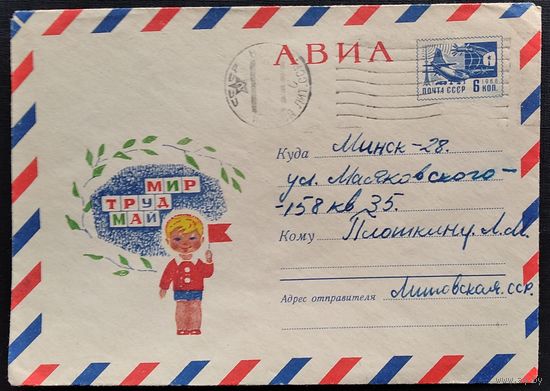 АВИА
СССР
ПОЧТА СССР 1966
6 КОП.
МИР
ТРУД
МАЙ
Куда Минск-28.
ул. Маяковского-
-158 кв 35.
Кому Плошкину Л.М.
Адрес отправителя Литовская ССР.